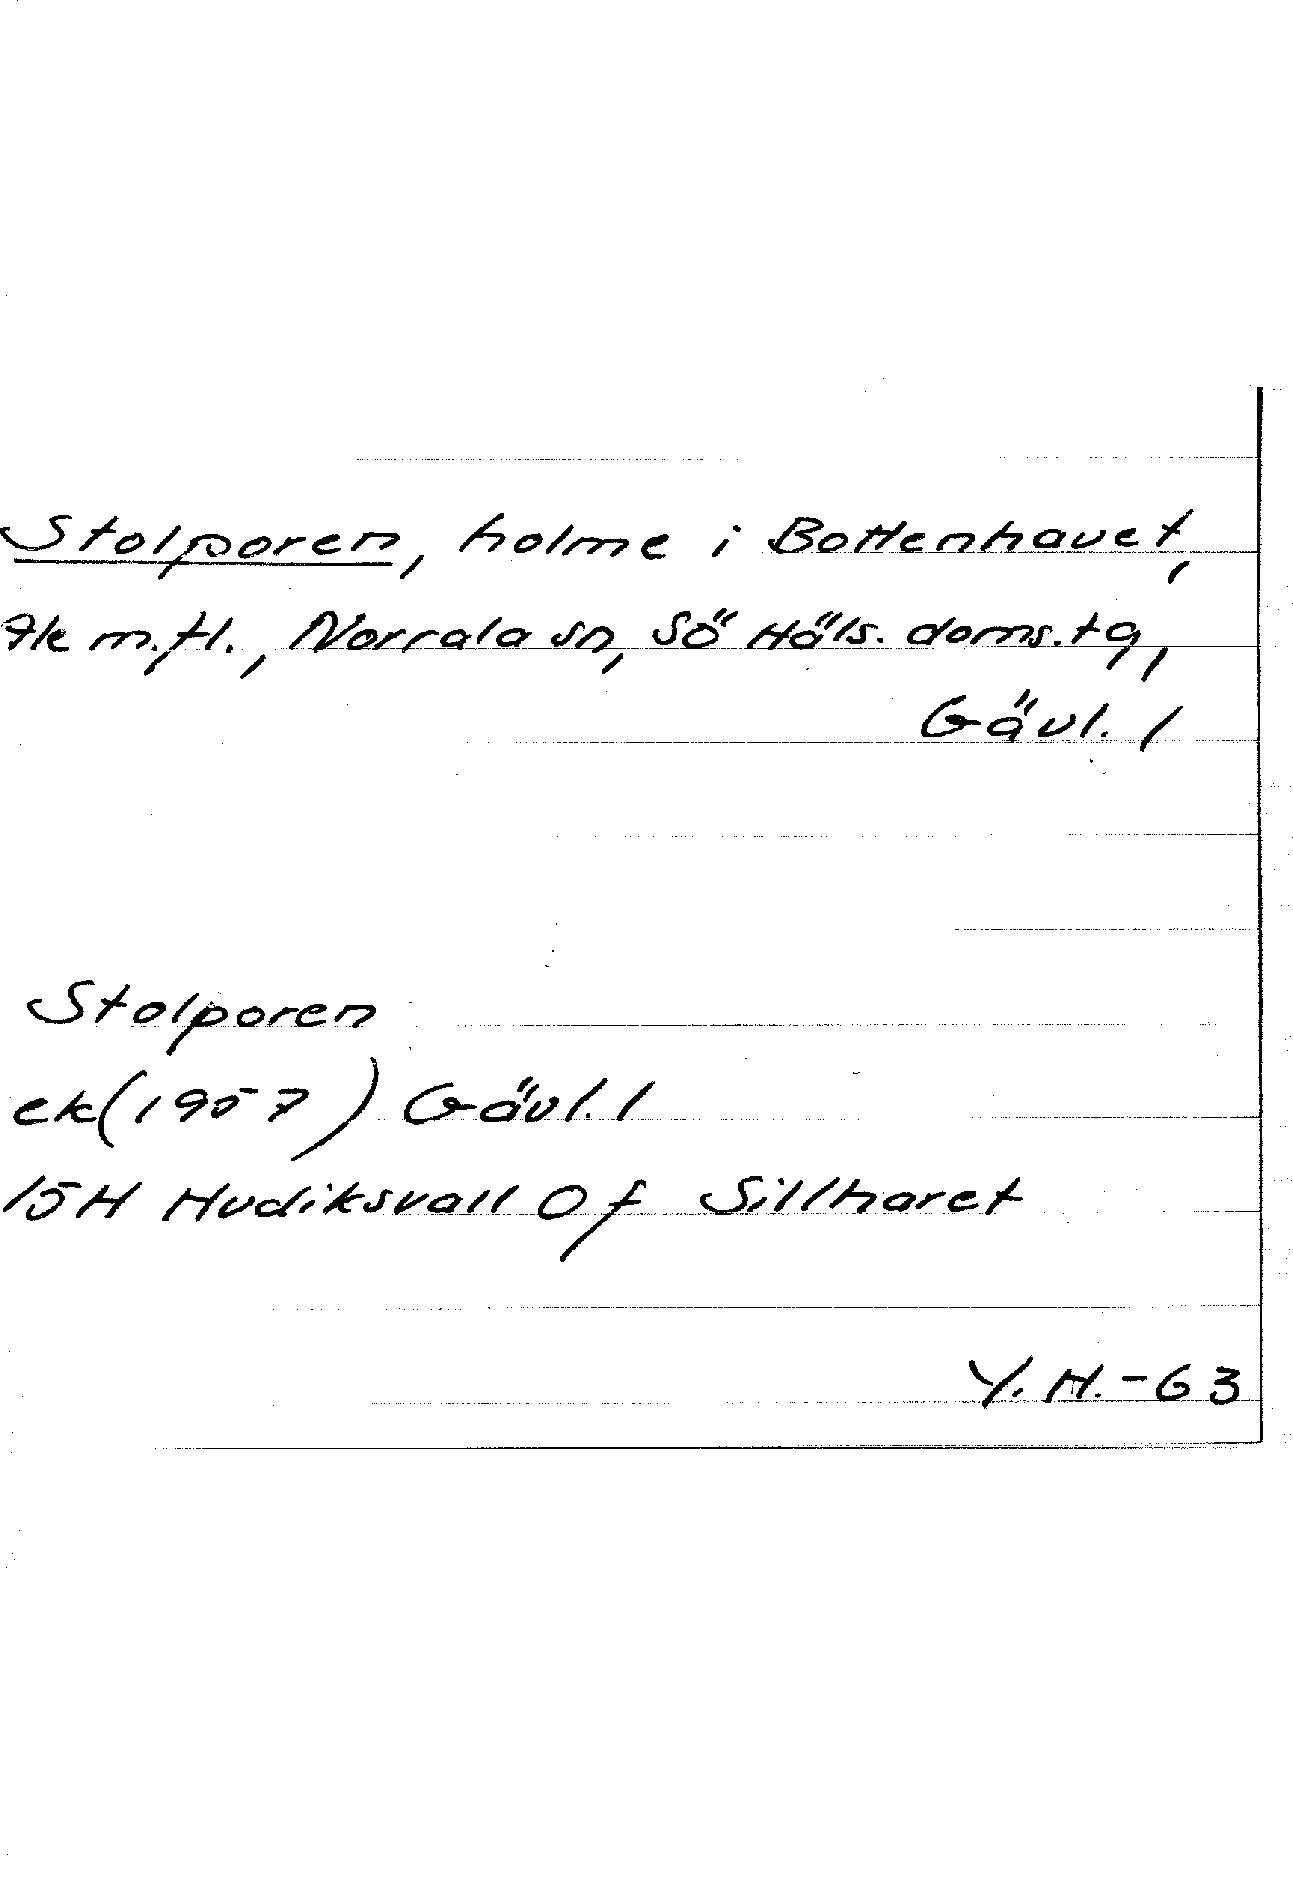 Stolporen, holme i Bottenhavet,
7k m.fl., Norrala sn, Sö Häls. doms.tg,
Gävl. l
Stolporen
ek (1957) Gävl. l
15H Hudiksvall 0f Sillharet
Y. H. - 63